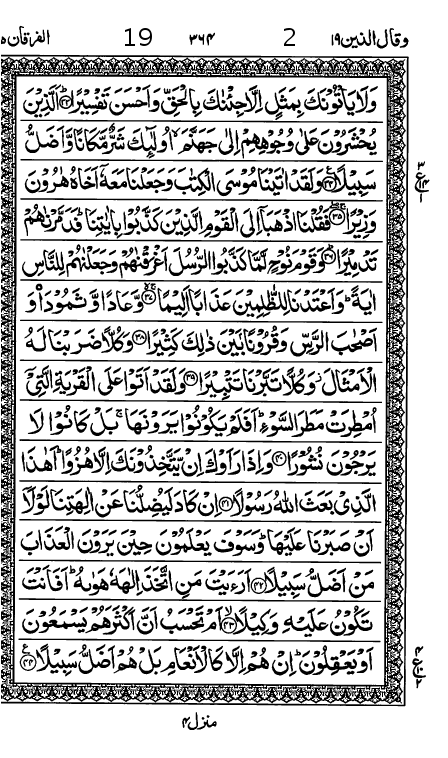 وقال الذین ۱۹ 2 ۳۶۴ 19 الفرقان ۲۵
وَلَا يَاْتُوْنَكَ بِمَثَلٍ اِلَّا جِئْنٰكَ بِالْحَقِّ وَاَحْسَنَ تَفْسِيْرًا ؕ﴿۳۳﴾ اَلَّذِيْنَ
يُحْشَرُوْنَ عَلٰى وُجُوْهِهِمْ اِلٰى جَهَنَّمَ ۙ اُولٰٓئِكَ شَرٌّ مَّكَانًا وَّاَضَلُّ
سَبِيْلًا ﴿۳۴﴾ وَلَقَدْ اٰتَيْنَا مُوْسَى الْكِتٰبَ وَجَعَلْنَا مَعَهٗۤ اَخَاهُ هٰرُوْنَ
وَزِيْرًا ﴿۳۵﴾ فَقُلْنَا اذْهَبَاۤ اِلَى الْقَوْمِ الَّذِيْنَ كَذَّبُوْا بِاٰيٰتِنَا ؕ فَدَمَّرْنٰهُمْ
تَدْمِيْرًا ﴿۳۶﴾ وَقَوْمَ نُوْحٍ لَّمَّا كَذَّبُوا الرُّسُلَ اَغْرَقْنٰهُمْ وَجَعَلْنٰهُمْ لِلنَّاسِ
اٰيَةً ؕ وَاَعْتَدْنَا لِلظّٰلِمِيْنَ عَذَابًا اَلِيْمًا ﴿۳۷﴾ وَّعَادًا وَّثَمُوْدَا۟ وَ
اَصْحٰبَ الرَّسِّ وَقُرُوْنًۢا بَيْنَ ذٰلِكَ كَثِيْرًا ﴿۳۸﴾ وَكُلًّا ضَرَبْنَا لَهُ
الْاَمْثَالَ ؗ وَكُلًّا تَبَّرْنَا تَتْبِيْرًا ﴿۳۹﴾ وَلَقَدْ اَتَوْا عَلَى الْقَرْيَةِ الَّتِيْۤ
اُمْطِرَتْ مَطَرَ السَّوْءِ ؕ اَفَلَمْ يَكُوْنُوْا يَرَوْنَهَا ۚ بَلْ كَانُوْا لَا
يَرْجُوْنَ نُشُوْرًا ﴿۴۰﴾ وَاِذَا رَاَوْكَ اِنْ يَّتَّخِذُوْنَكَ اِلَّا هُزُوًا ؕ اَهٰذَا
الَّذِيْ بَعَثَ اللّٰهُ رَسُوْلًا ﴿۴۱﴾ اِنْ كَادَ لَيُضِلُّنَا عَنْ اٰلِهَتِنَا لَوْلَاۤ
اَنْ صَبَرْنَا عَلَيْهَا ؕ وَسَوْفَ يَعْلَمُوْنَ حِيْنَ يَرَوْنَ الْعَذَابَ
مَنْ اَضَلُّ سَبِيْلًا ﴿۴۲﴾ اَرَءَيْتَ مَنِ اتَّخَذَ اِلٰهَهٗ هَوٰىهُ ؕ اَفَاَنْتَ
تَكُوْنُ عَلَيْهِ وَكِيْلًا ۙ﴿۴۳﴾ اَمْ تَحْسَبُ اَنَّ اَكْثَرَهُمْ يَسْمَعُوْنَ
اَوْ يَعْقِلُوْنَ ؕ اِنْ هُمْ اِلَّا كَالْاَنْعَامِ بَلْ هُمْ اَضَلُّ سَبِيْلًا ﴿۴۴﴾
منزل ۴